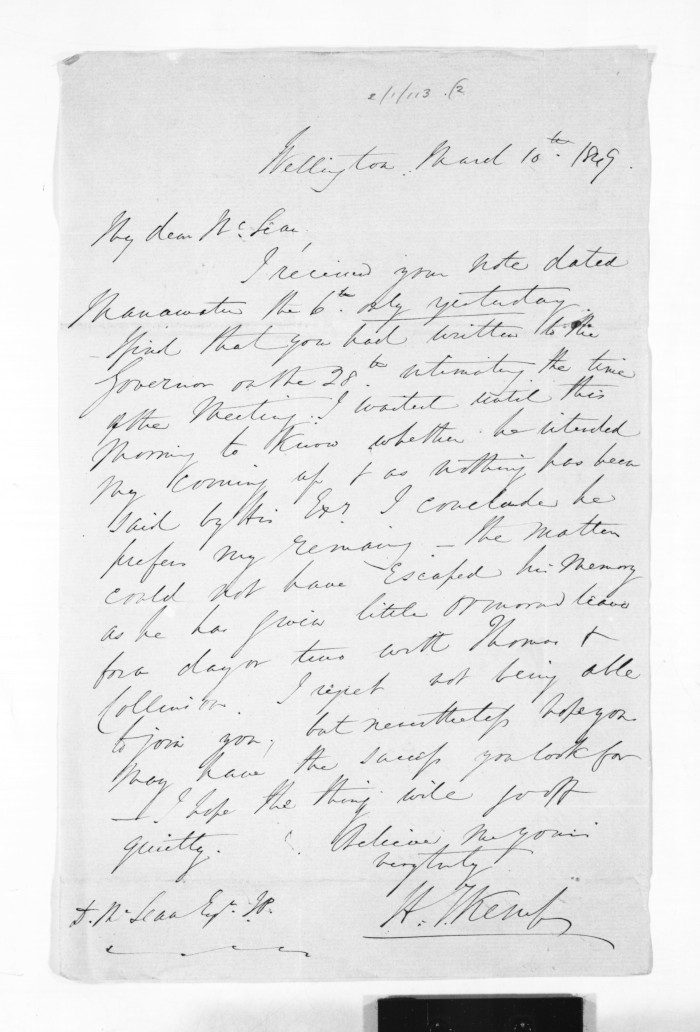 2/1/113 .(2
Wellington, March 10th. 1849.
My dear McLean,
I received your note dated
Manawatu the 6th. only yesterday.
I find that you had written to the
Governor on the 28th. intimating the time
of the Meeting. I waited until this
Morning to know whether he intended
my coming up & as nothing has been
said by His Exy. I conclude he
prefers my remaing - the matter
could not have Escaped his Memory
as he has given little Ormond leave
for a day or two with Thomas &
Collinson. I regret not being able
to join you, but nevertheless hope you
may have the success you look for
- I hope the thing will go off
quietly. Believe me yours
very truly
H. T. Kemp
D. McLean Esqr.